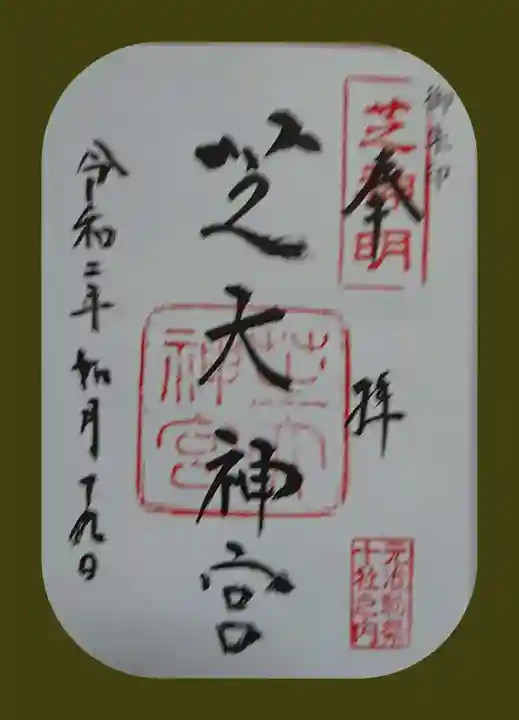 御朱印
芝神明
奉拝
芝大神宮
芝大
神宮
令和二年 如月 十九日
十社之内